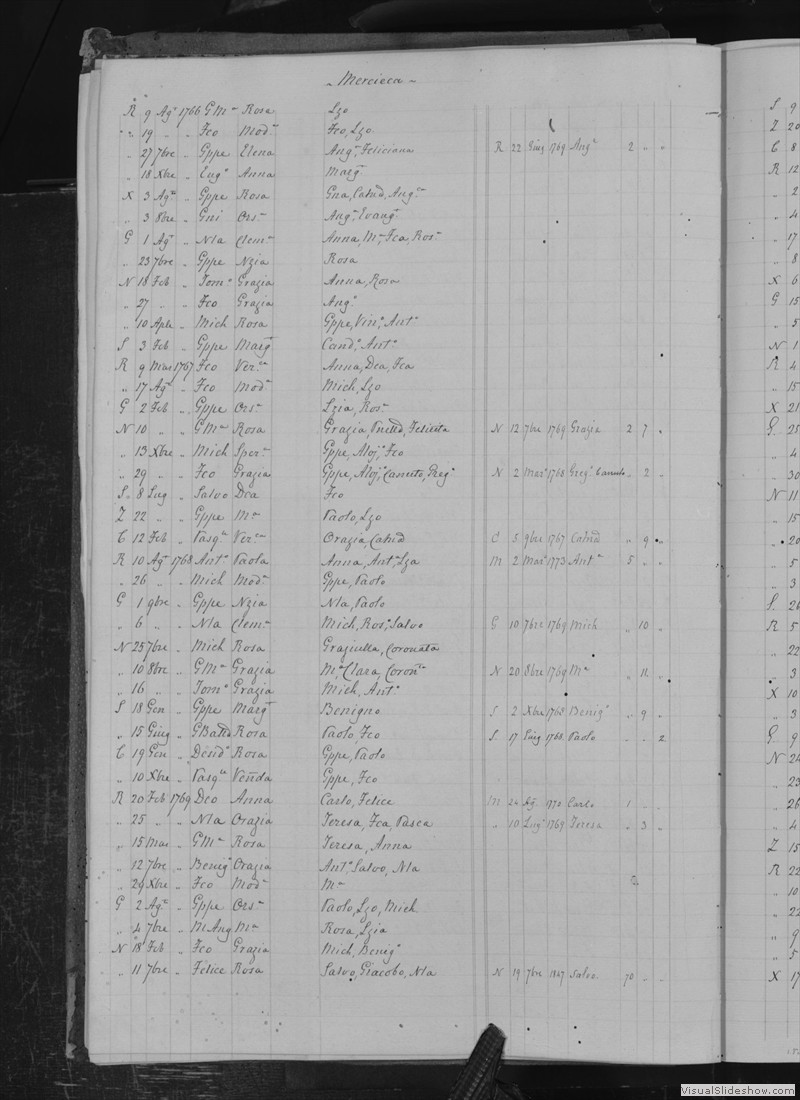 Mercieca
R 9 Agᵒ 1766 GMᵃ Rosa Lzo
" 19 " " Fco Modᵃ Fco, Lzo
" 27 7bre " Gppe Elena Angᵃ, Feliciana R 22 Giug 1769 Angᵃ 2 " "
" 18 Xbre " Eugᵒ Anna Margᵃ
X 3 Agᵒ " Gppe Rosa Gna, Catnd, Angᵃ
" 3 8bre " Gni Orsᵃ Angᵃ, Evangᵃ
G 1 Agᵒ " Nla Clemᵃ Anna, Mᵃ, Fca, Rosᵃ
" 23 7bre " Gppe Nzia Rosa
N 18 Feb " Tomᵒ Grazia Anna, Rosa
" 27 " " Fco Grazia Angᵒ
" 10 Aple " Mich Rosa Gppe, Vinᵒ, Antᵒ
S 3 Feb " Gppe Margᵃ Candᵃ, Antᵃ
R 9 Mar 1767 Fco Verᵃ Anna, Dca, Fca
" 17 Agᵒ " Fco Modᵃ Mich, Lzo
G 2 Feb " Gppe Orsᵃ Lzia, Rosᵃ
N 10 " " GMᵃ Rosa Grazia, Felicita N 12 7bre 1769 Grazia 2 7 "
" 13 Xbre " Mich Sperᵃ Gppe, Alojᵒ, Fco
" 29 " " Fco Grazia Gppe, Alojᵒ, Canuto, Gregᵒ N 2 Marᵒ 1768 Gregᵒ Canuto " 2 "
S 8 Lug " Salvo Dca Fco
Z 22 " " Gppe Mᵃ Paolo, Lzo
C 12 Feb " Pasqᵉ Verᵃ Orazia, Catnd C 5 9bre 1767 Catnd " 9 "
R 10 Agᵒ 1768 Antᵒ Paola Anna, Antᵃ, Lza M 2 Marᵒ 1773 Antᵃ 5 " "
" 26 " " Mich Modᵃ Gppe, Paolo
G 1 9bre " Gppe Nzia Nla, Paolo
" 6 " " Nla Clemᵃ Mich, Rosᵒ, Salvo G 10 7bre 1769 Mich " 10 "
N 25 7bre " Mich Rosa Graziulla, Coronata
" 10 8bre " GMᵃ Grazia Mᵃ, Clara, Coronᵗᵃ N 20 8bre 1769 Mᵃ " 11 "
" 16 " " Tomᵒ Grazia Mich, Antᵒ
S 18 Gen " Gppe Margᵃ Benigno S 2 Xbre 1768 Benigᵒ " 9 "
" 15 Giug " GBatta Rosa Paolo, Fco S 17 Giug 1768 Paolo " " 2
C 19 Gen " Desidᵒ Rosa Gppe, Paolo
" 10 Xbre " Pasqᵉ Venda Gppe, Fco
R 20 Feb 1769 Dco Anna Carlo, Felice M 24 Agᵒ 1770 Carlo 1 " "
" 25 " " Nla Orazia Teresa, Fca, Pasca " 10 Lugᵒ 1769 Teresa " 3 "
" 15 Mar " GMᵃ Rosa Teresa, Anna
" 12 7bre " Benigᵒ Orazia Antᵒ, Salvo, Nla
" 29 Xbre " Fco Modᵃ Mᵃ
G 2 Agᵒ " Gppe Orsᵃ Paolo, Lzo, Mich
" 4 7bre " MAng Mᵃ Rosa, Lzia
N 18 Feb " Fco Grazia Mich, Benigᵒ
" 11 7bre " Felice Rosa Salvo, Giacobo, Nla N 19 7bre 1847 Salvo 70 " "
S 9
Z 20
C 8
R 12
" 2
" 4
" 17
" 8
X 6
G 15
" 5
N 1
R 4
" 15
X 21
G 25
" 4
" 30
N 11
" 15
" 20
" 5
" 3
S 26
R 5
" 22
" 3
X 10
" 3
G 9
N 24
" 23
" 26
" 4
Z 15
R 22
" 10
" 22
" 9
" 5
X 17
VisualSlideshow.com